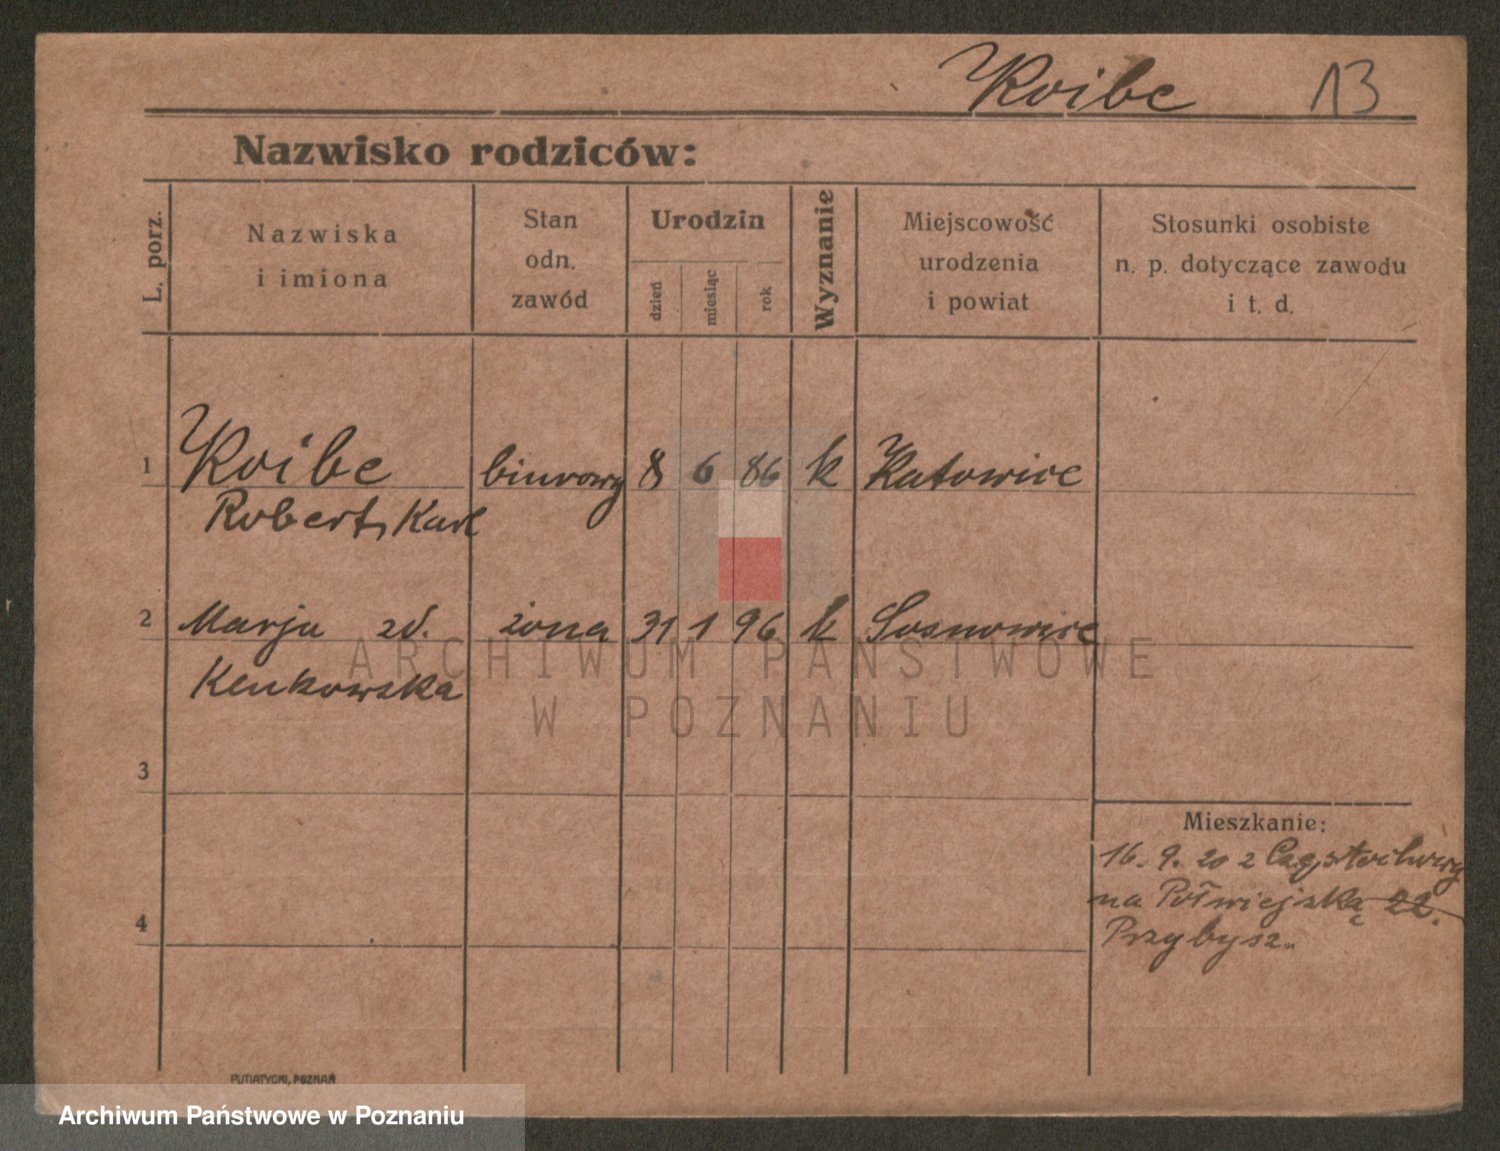 Koibe 13
Nazwisko rodziców:
L. porz.
Nazwiska
i imiona
Stan
odn.
zawód
Urodzin
dzień
miesiąc
rok
Wyznanie
Miejscowość
urodzenia
i powiat
Stosunki osobiste
n. p. dotyczące zawodu
i t. d.
1 Koibe biurowy 8 6 86 k Katowice
Robert, Karl
2 Marja zd. żona 31 1 96 k Sosnowice
Kenkowska
ARCHIWUM PAŃSTWOWE
W POZNANIU
3
Mieszkanie:
16. 9. 20 z Częstochowy
na Półwiejską 22.
4
Przybysz
PUTIATYCKI, POZNAŃ
Archiwum Państwowe w Poznaniu